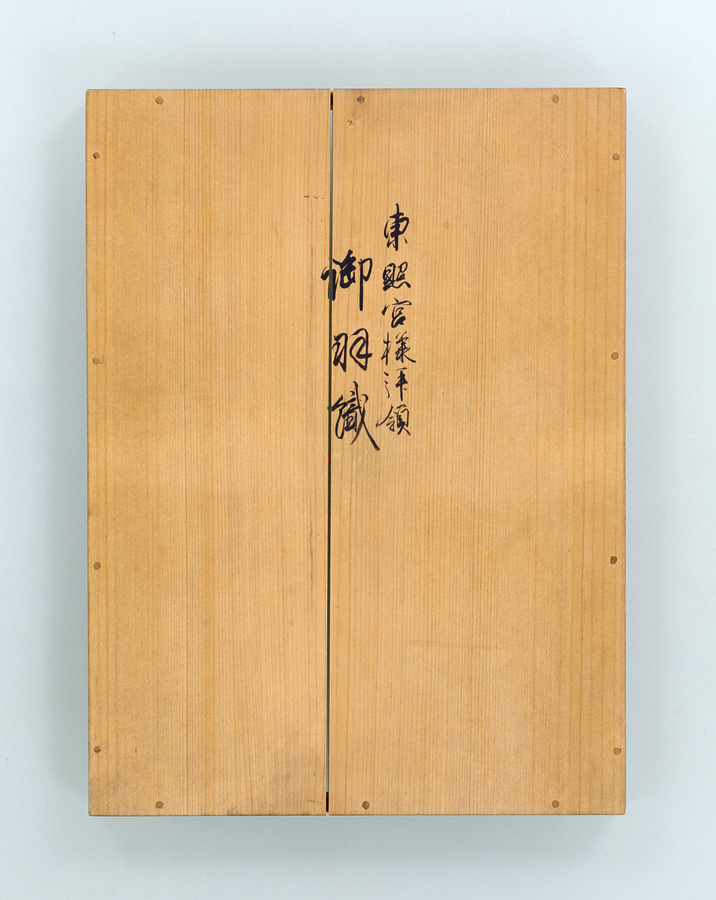 東照宮様拝領
御羽織